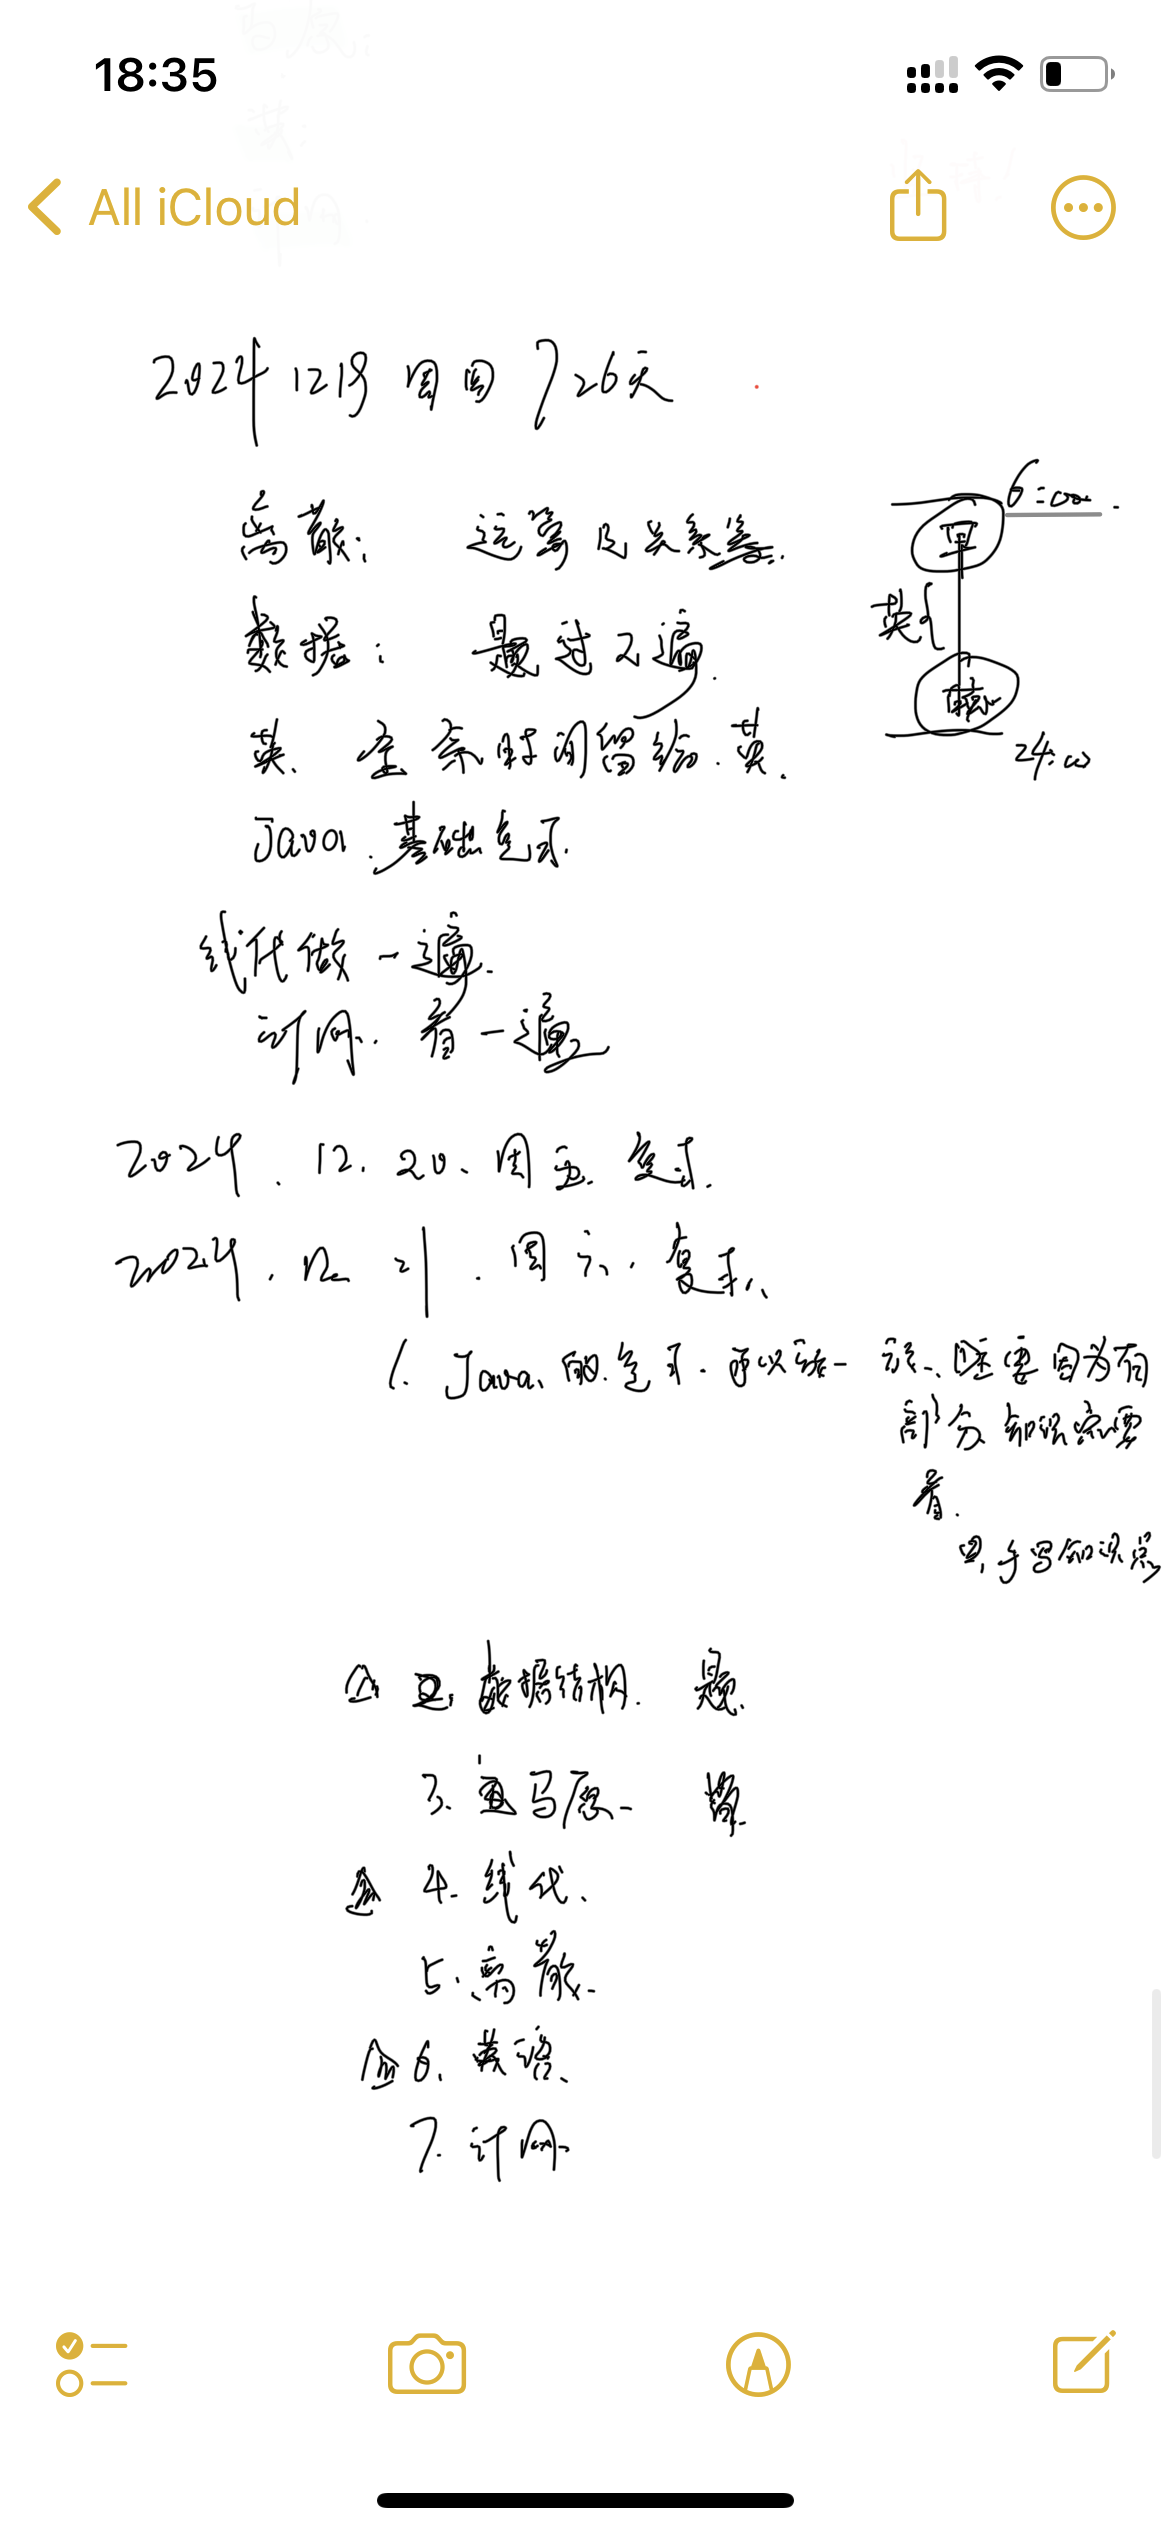 18:35
All iCloud
2024 12 19 周四 726天
离散: 运算及关系等.
6:00.
早
英{
晚
24:00
数据: 题过2遍.
英. 全余时间留给.英.
Java.基础复习.
线代做一遍.
计网.看一遍
2024.12.20.周五.复习.
2024.12 21.周六.复习.
1. Java.的.复习.可以结一 主要因为有
部分知识需要
看.
手写知识点
2.数据结构. 题.
3. 马原.
4. 线代.
5.离散.
6.英语.
7.计网.